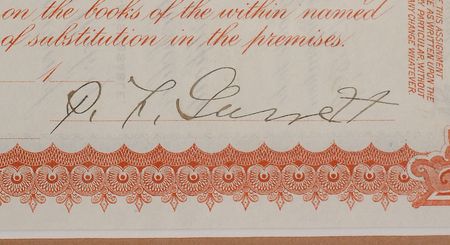 on the books of the within named
of substitution in the premises.
1
P. F. Garrett
THIS ASSIGNMENT
AS WRITTEN UPON THE
PARTICULAR WITHOUT
CHANGE WHATEVER.